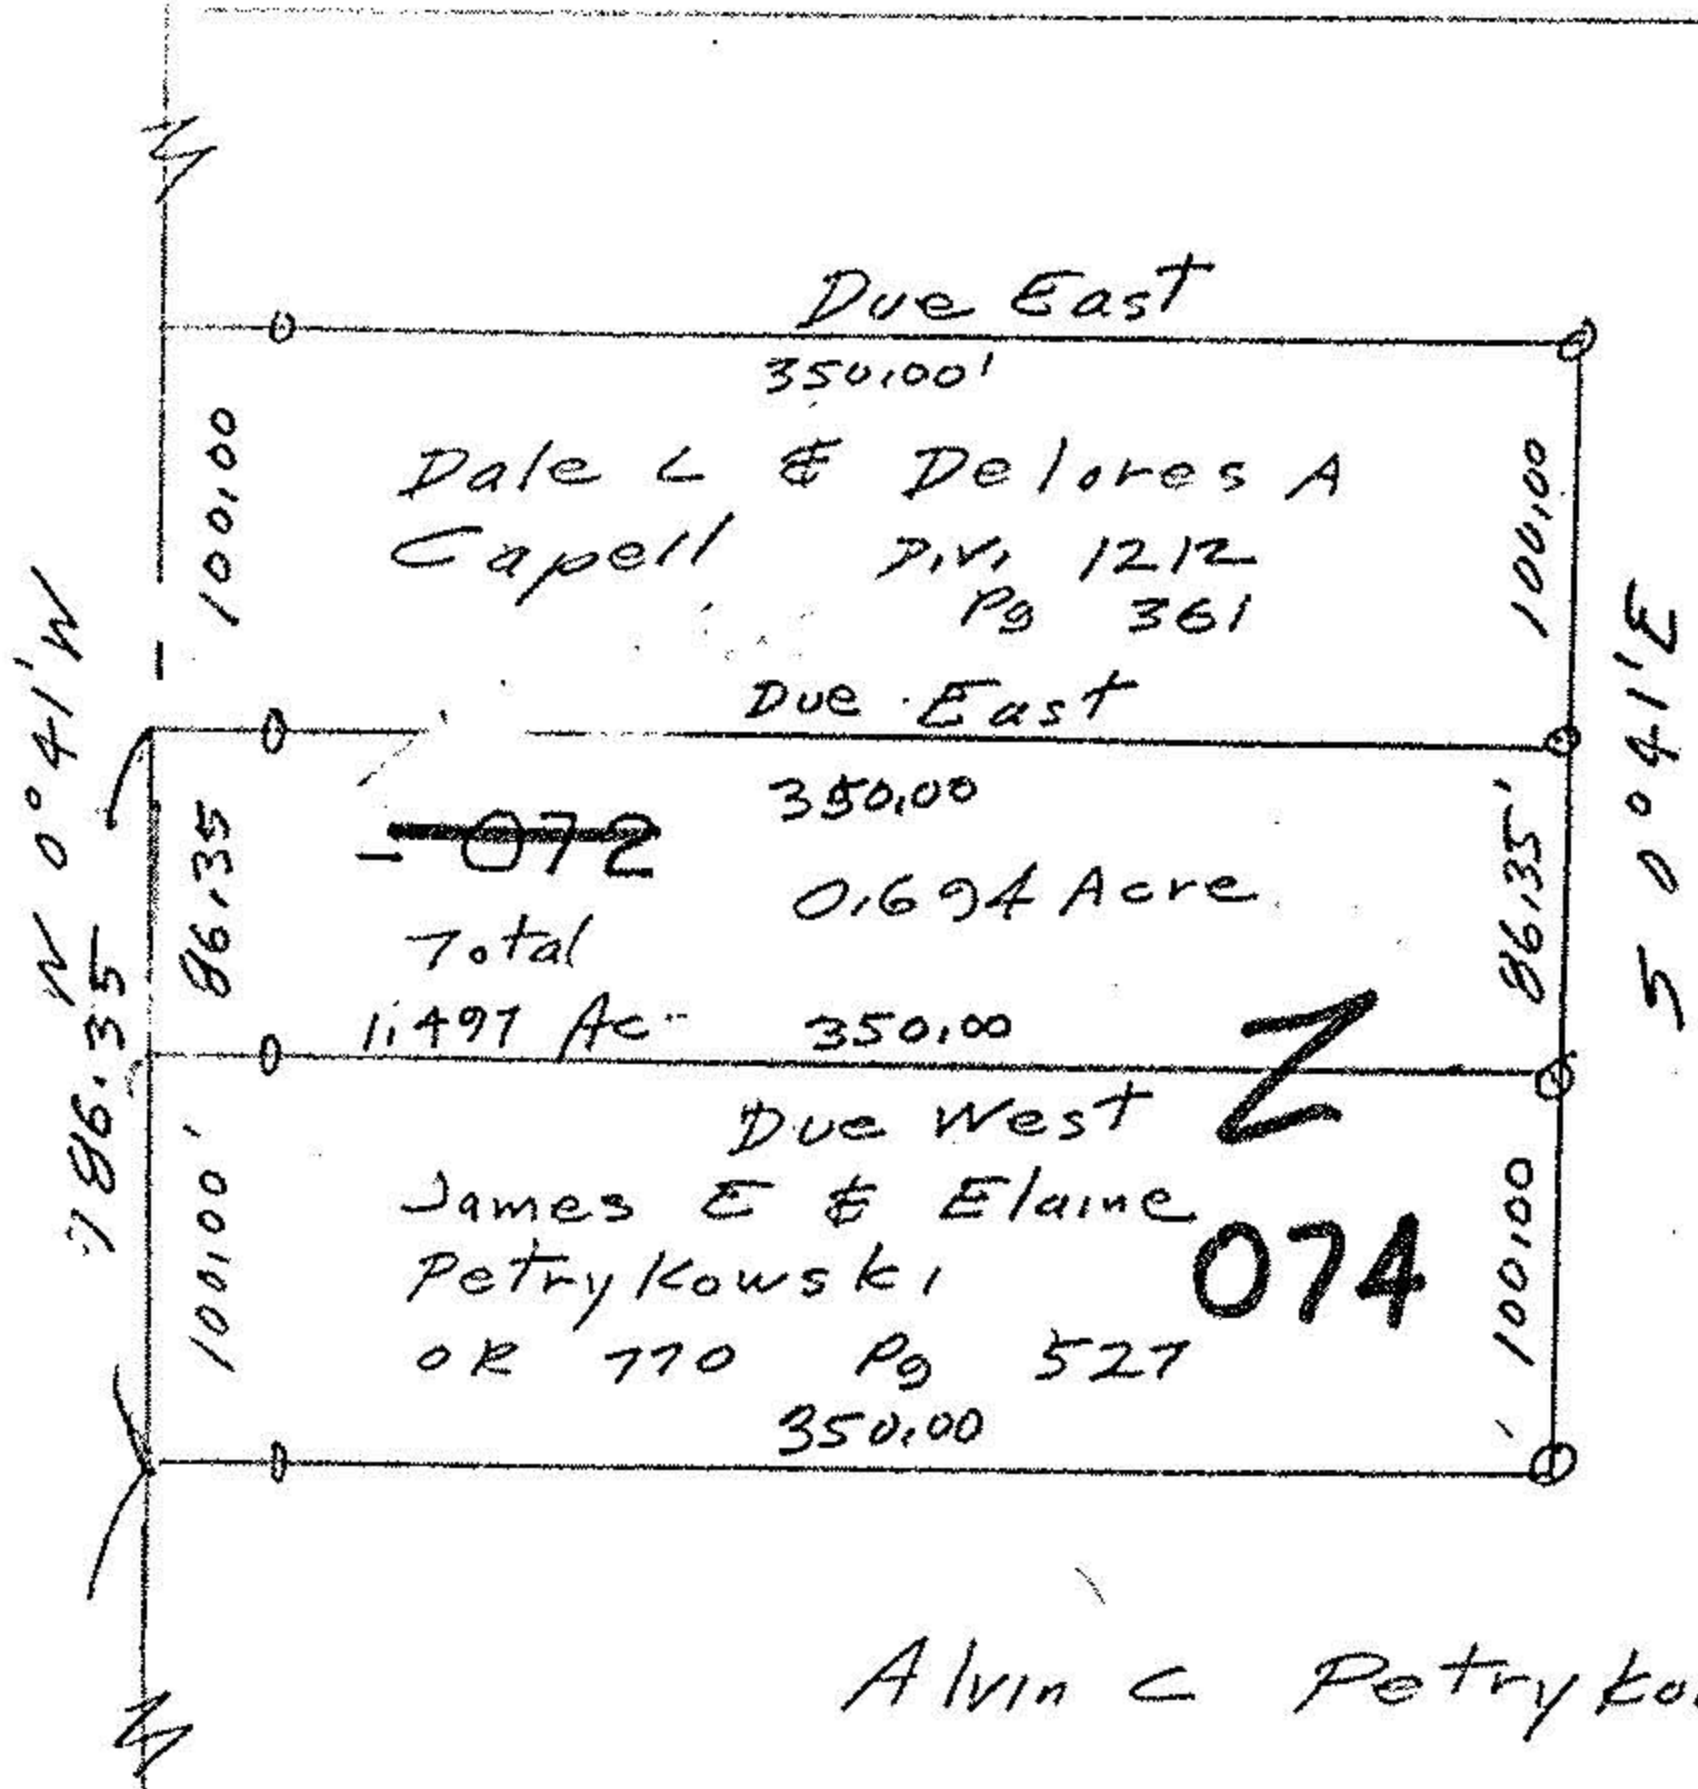 Due East
350.00'
100.00
100.00
Dale L & Delores A
Capell D.V. 1212
Pg 361
N 0° 41' W
S 0° 41' E
Due East
350.00
86.35
86.35'
- 072
0.694 Acre
Total
1.497 Ac
350.00
186.35
Due West
100.00'
100.00'
James E & Elaine
Petrykowski
074
OR 770 Pg 527
350.00
Alvin C Petryko